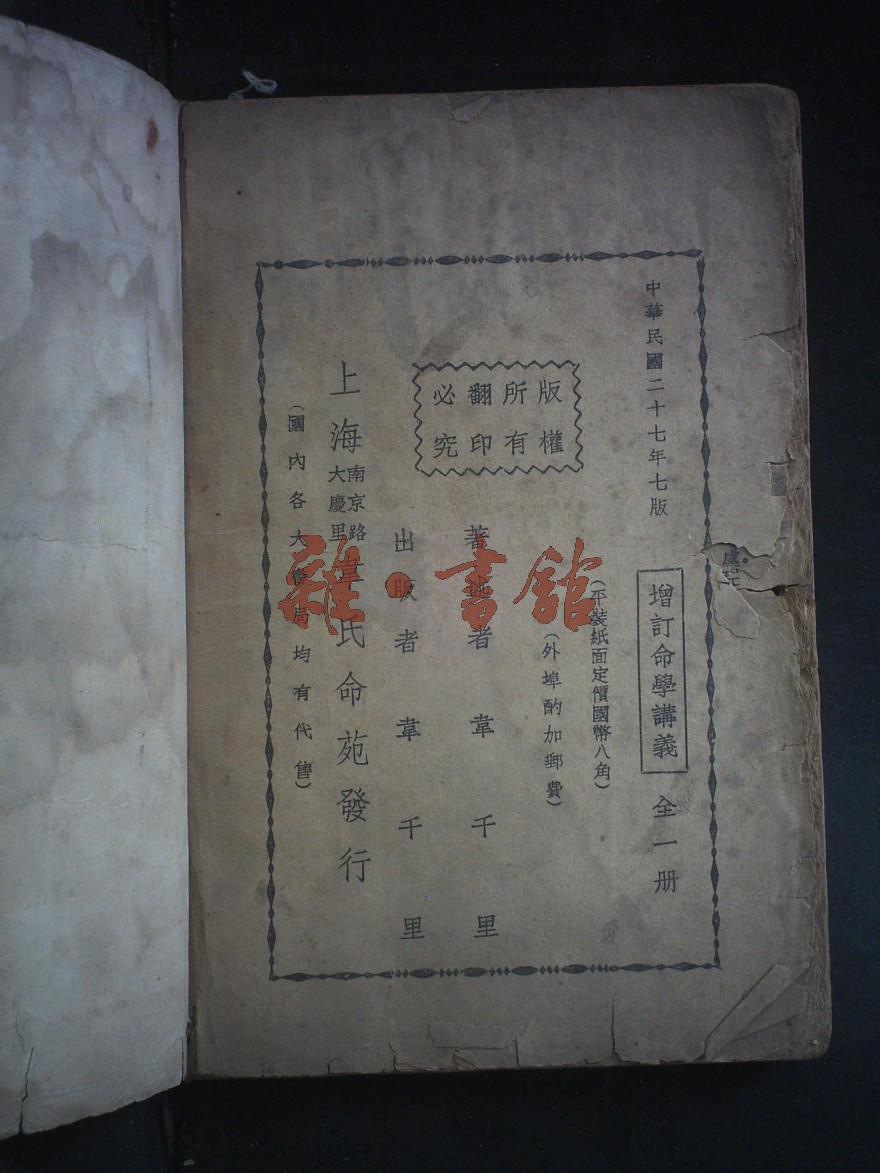 中華民國二十七年七版
增訂命學講義 全一册
(平裝紙面定價國幣八角)
(外埠酌加郵費)
版權
所有
翻印
必究
著述者 韋千里
出版者 韋千里
上海 南京路 大慶里 韋氏命苑發行
(國內各大書局均有代售)
雜·書館